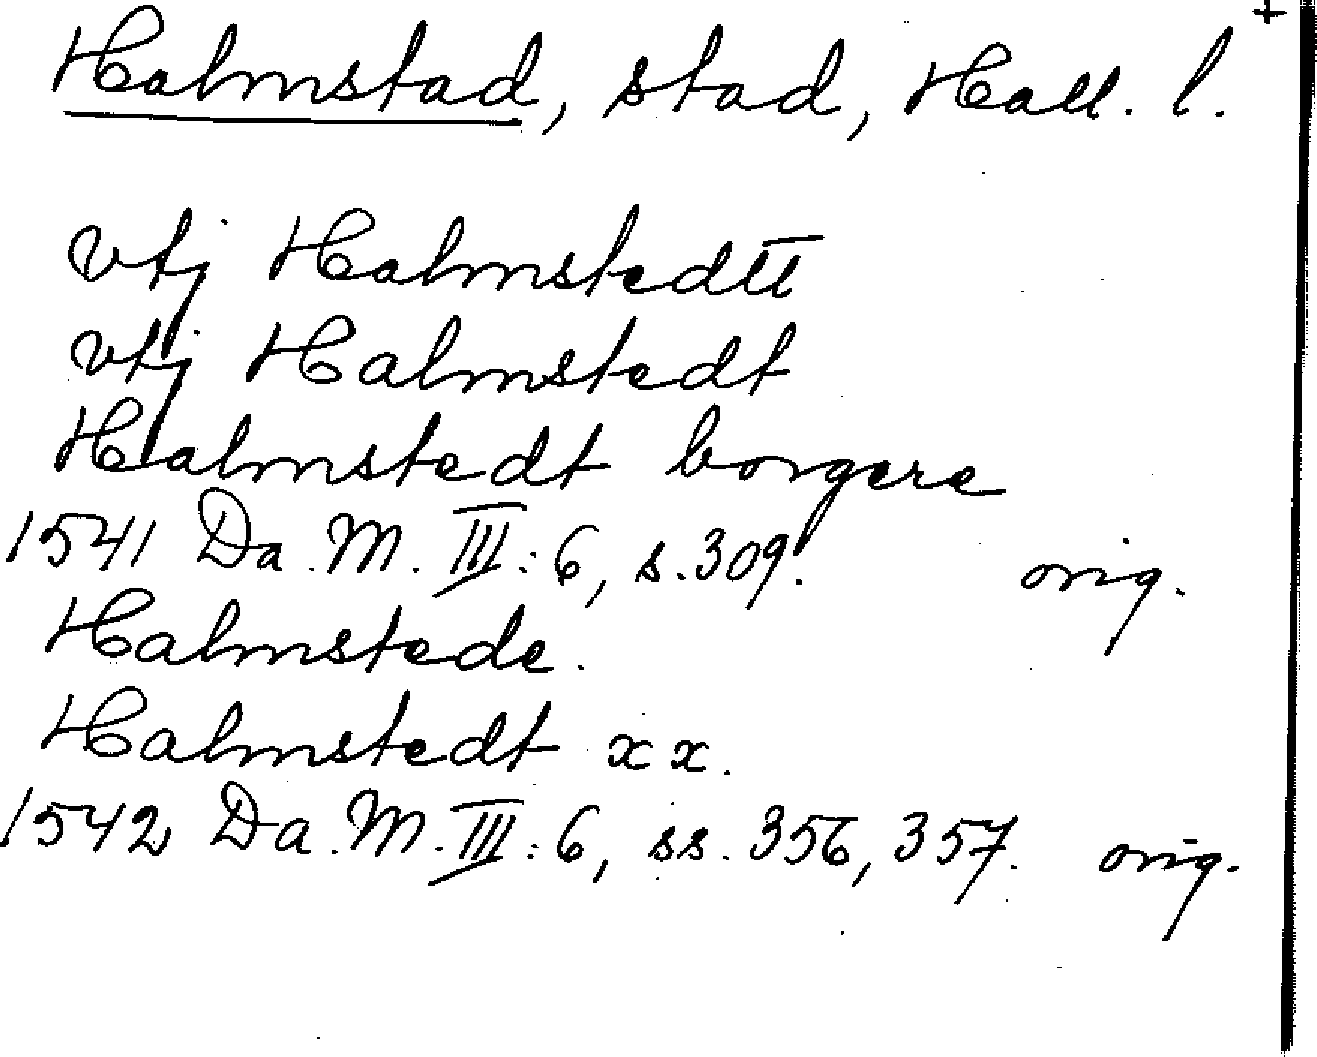 +
Halmstad, stad, Hall. l.
vtj Halmstedtt
vtj Halmstedt
Halmstedt borgere
1541 Da. M. III: 6, s. 309. orig.
Halmstede.
Halmstedt xx.
1542 Da. M. III: 6, ss. 356, 357. orig.